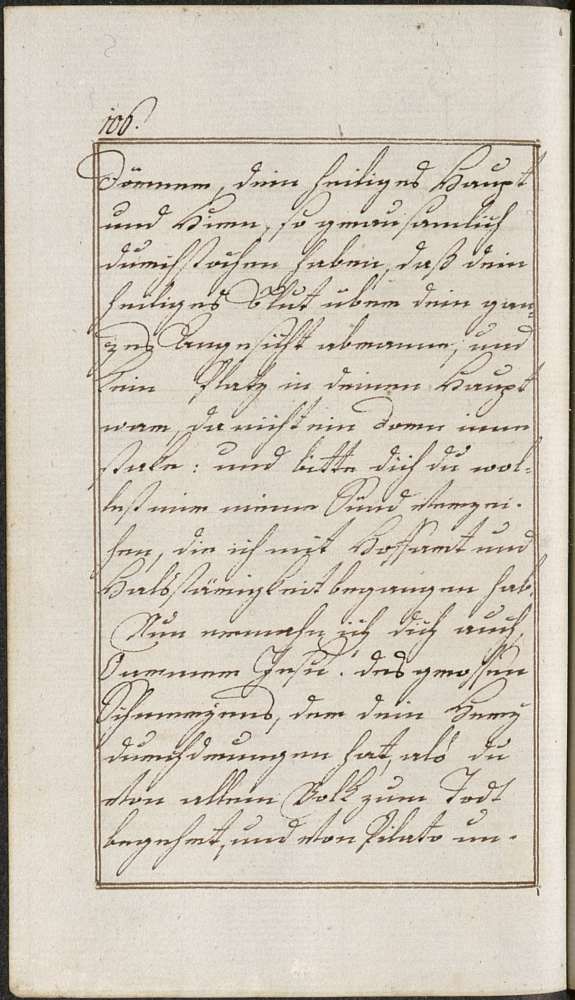 106.
Dörnnen, dein heiliges Haupt
und Hirn, so grausamlich
durchstochen haben, daß dein
heiliges Blut über dein gan¬
zes Angesicht abranne, und
kein Platz in deinem Haupt
ware, da nicht ein Dorn inne
stake: und bitte dich du wol¬
lest mir meine Sünd verzei¬
hen, die ich mit Hoffart und
Halsstärrigkeit begangen hab.
Nun ermahn ich dich auch,
O armer Jesu! des grossen
Schmerzens, der dein Herz
durchdrungen hat, als du
von allem Volk zum Todt
begehrt, und von Pilato un¬